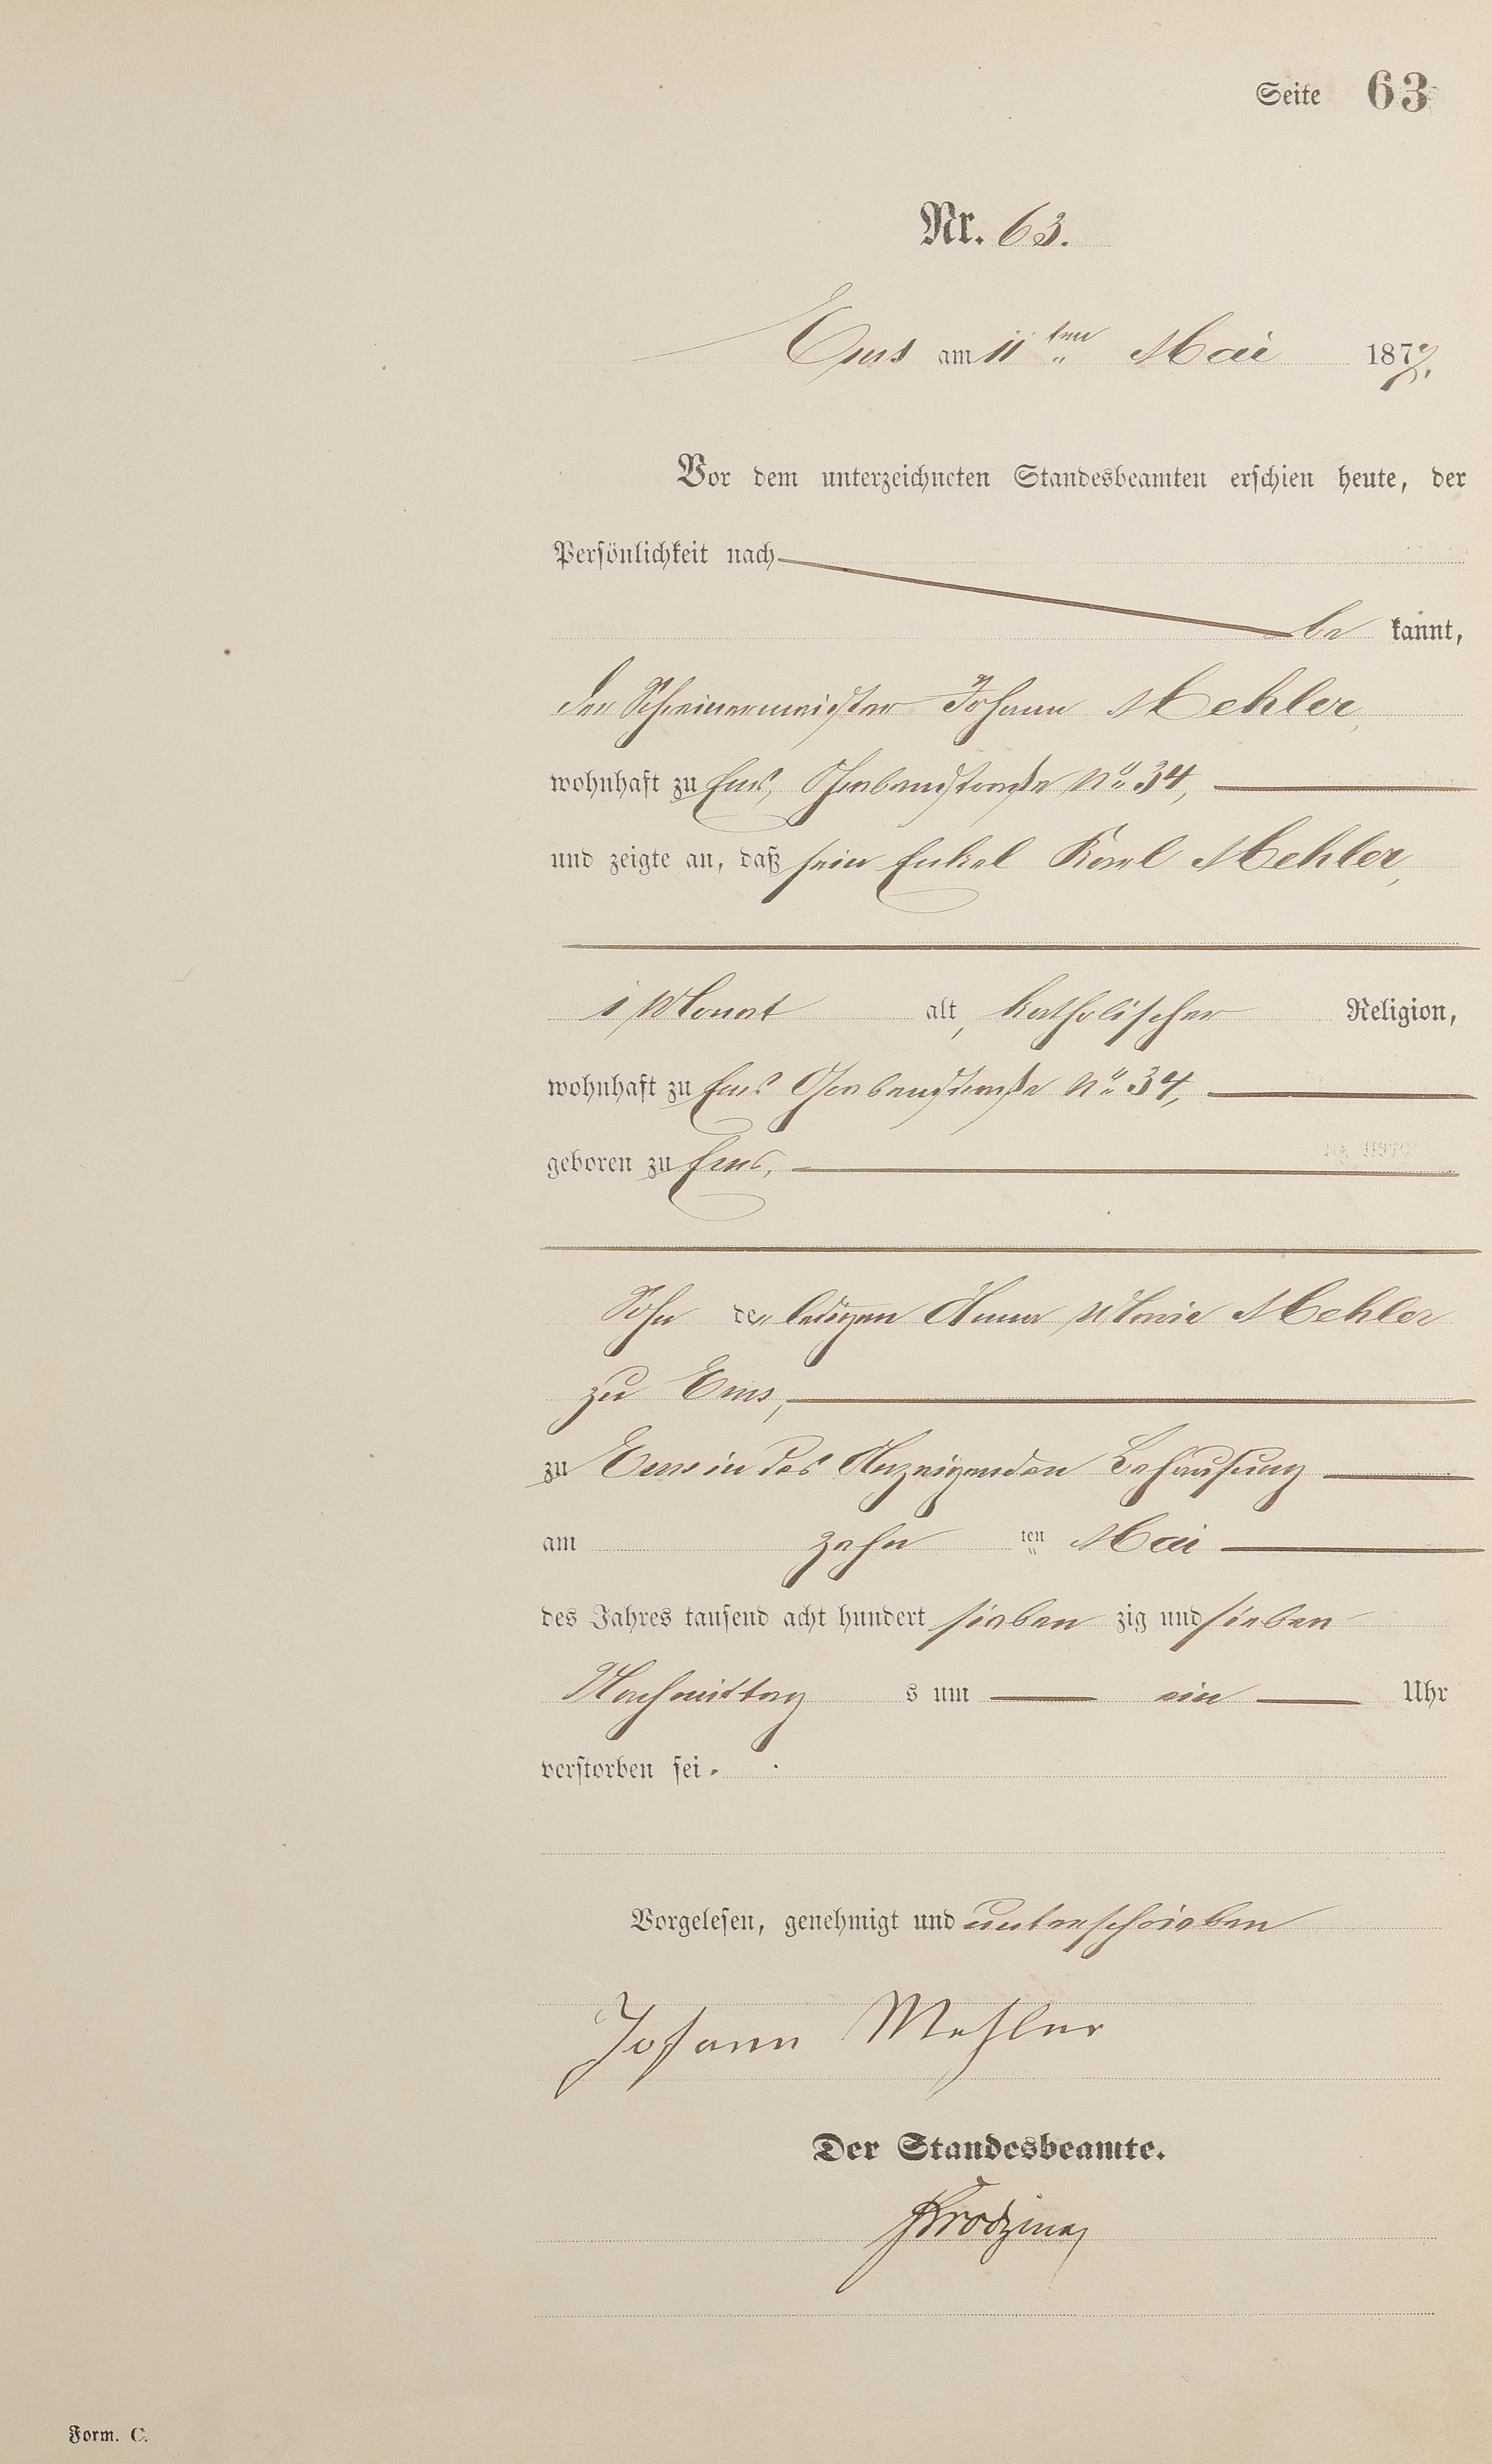 Seite 63
Nr. 63.
Ems am 11ten Mai 1877.
Vor dem unterzeichneten Standesbeamten erschien heute, der
Persönlichkeit nach
be kannt,
der Schreinermeister Johann Mehler,
wohnhaft zu Ems, Grabenstraße No 34,
und zeigte an, daß sein Enkel Karl Mehler,
1 Monat alt, katholischer Religion,
wohnhaft zu Ems Grabenstraße No 34,
geboren zu Ems,
Sohn der ledigen Anna Maria Mehler
zu Ems,
zu Ems in des Anzeigenden Behausung
am zehn ten Mai
des Jahres tausend acht hundert sieben zig und sieben
Nachmittag s um ein Uhr
verstorben sei.
Vorgelesen, genehmigt und unterschrieben
Johann Mehler
Der Standesbeamte.
Form. C.